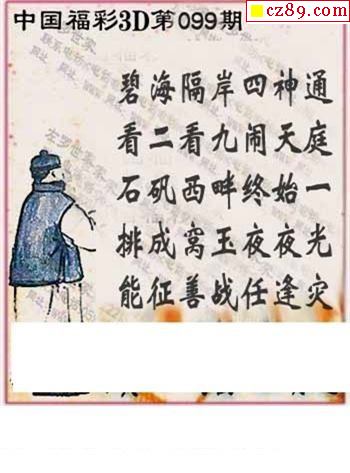 cz89.com
中国福彩3D第099期
碧海隔岸四神通
看二看九闹天庭
石矾西畔终始一
排成窝玉夜夜光
能征善战任逢灾